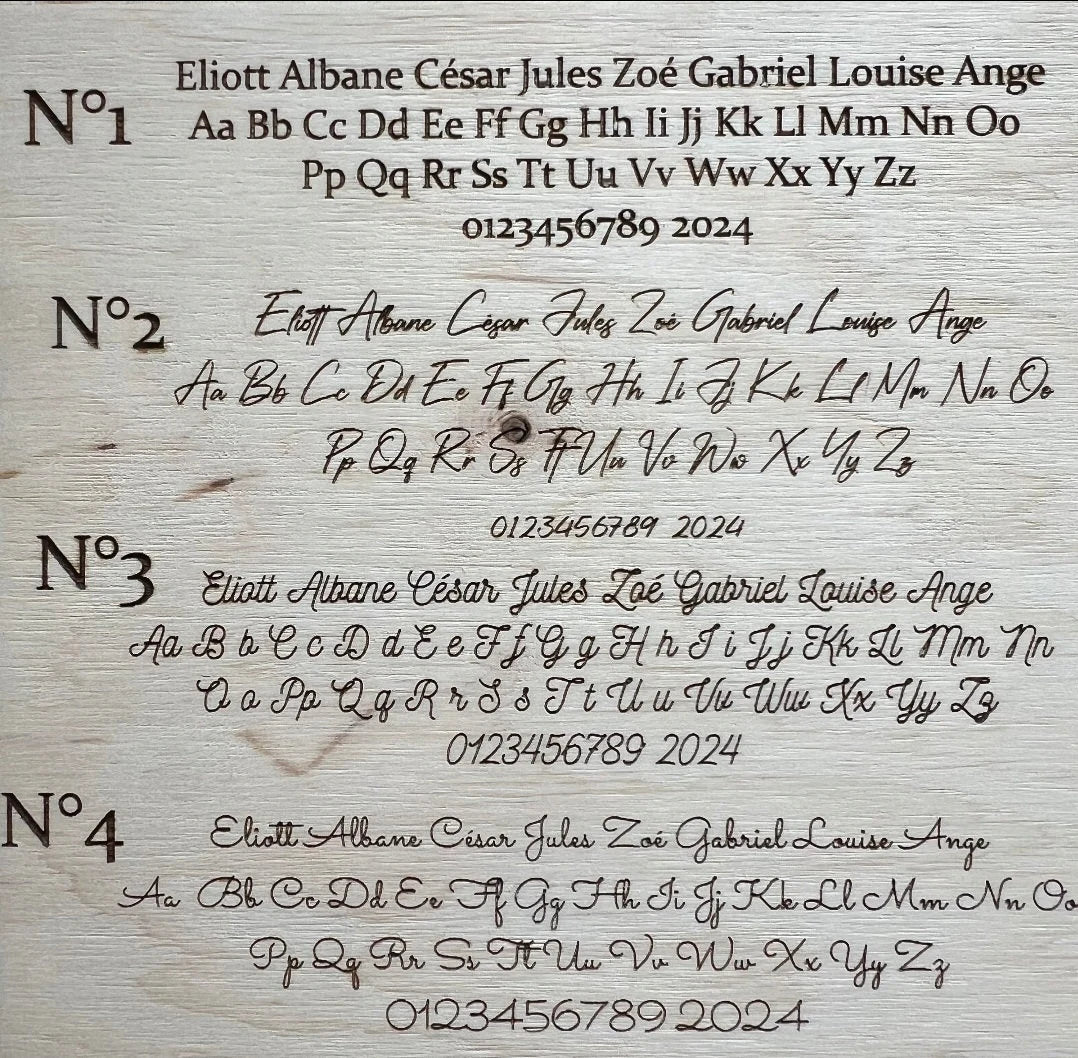 N°1
Eliott Albane César Jules Zoé Gabriel Louise Ange
Aa Bb Cc Dd Ee Ff Gg Hh Ii Jj Kk Ll Mm Nn Oo
Pp Qq Rr Ss Tt Uu Vv Ww Xx Yy Zz
0123456789 2024
N°2
Eliott Albane César Jules Zoé Gabriel Louise Ange
Aa Bb Cc Dd Ee Ff Gg Hh Ii Jj Kk Ll Mm Nn Oo
Pp Qq Rr Ss Tt Uu Vv Ww Xx Yy Zz
0123456789 2024
N°3
Eliott Albane César Jules Zoé Gabriel Louise Ange
Aa B b C c D d E e F f G g H h I i Jj Kk Ll Mm Nn
O o Pp Q q R r S s T t U u Vv Ww Xx Yy Zz
0123456789 2024
N°4
Eliott Albane César Jules Zoé Gabriel Louise Ange
Aa Bb Cc Dd Ee Ff Gg Hh Ii Jj Kk Ll Mm Nn Oo
Pp Qq Rr Ss Tt Uu Vv Ww Xx Yy Zz
0123456789 2024